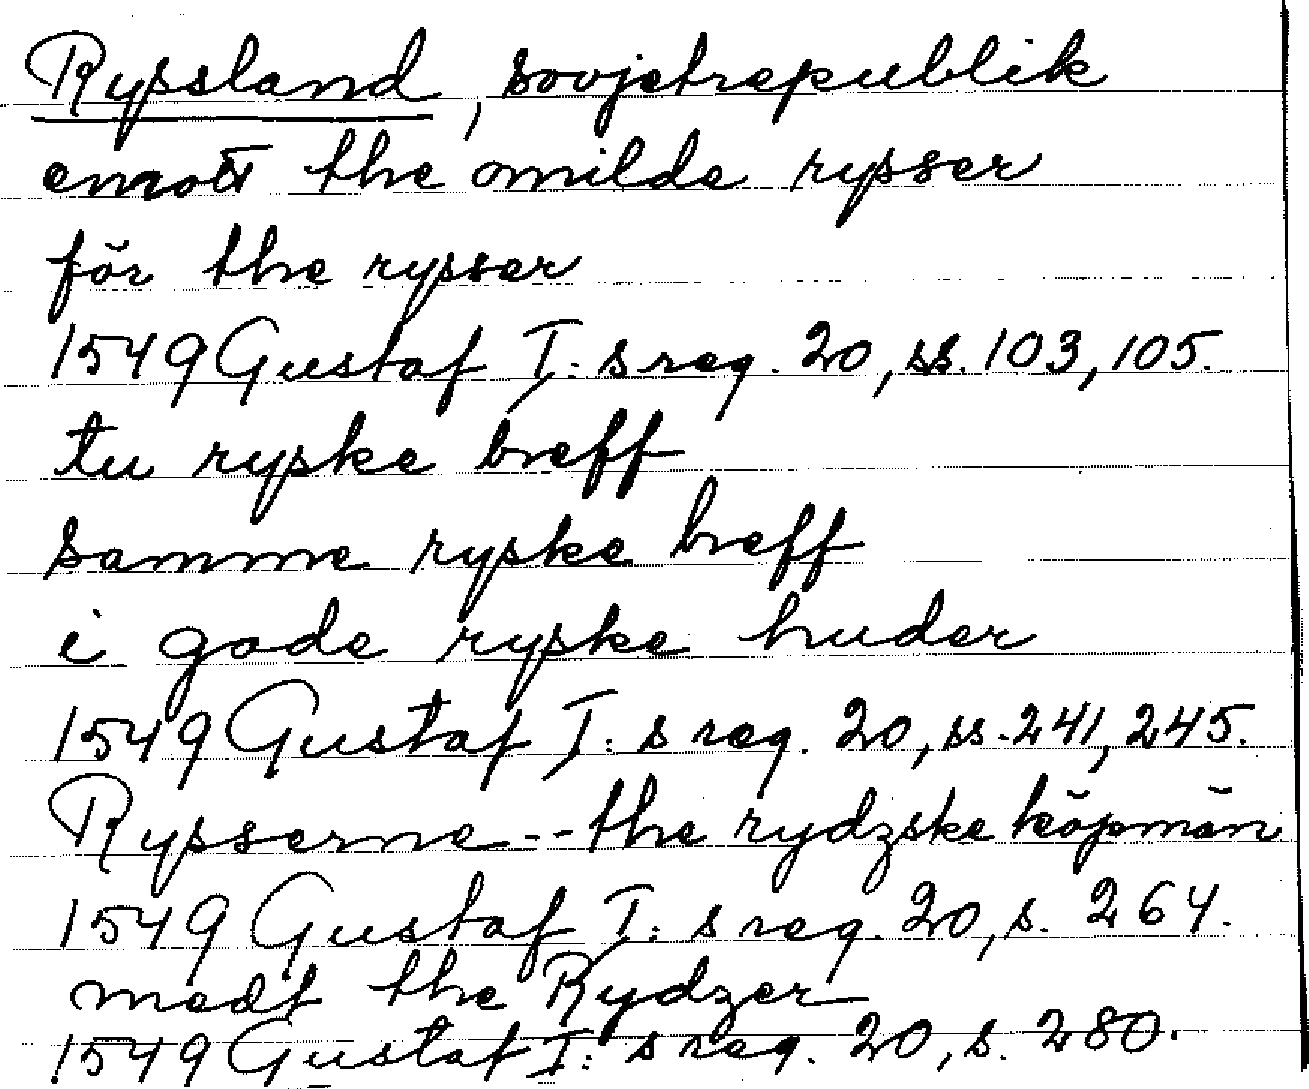 Ryssland, sovjetrepublik
emott the omilde rysser
för the rysser
1549 Gustaf I: s reg. 20, ss. 103, 105.
tu ryske breff
samme ryske breff
i gode ryske huder
1549 Gustaf I: s reg. 20, ss. 241, 245.
Rysserne -- the rydzske köpmän
1549 Gustaf I: s reg. 20, s. 264.
medt the Rydzer
1549 Gustaf I: s reg. 20, s. 280.